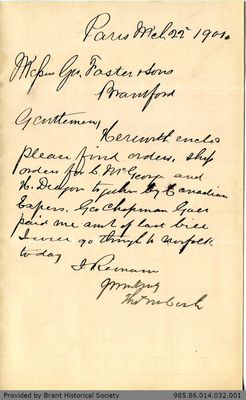 Paris Mch 22nd 1901
Messrs Geo. Foster & Sons
Brantford
Gentlemen,
Herewith enclo
please find orders, ship
orders for C McGeorge and
H. Deagon to gether by Canadian
Express. Geo Chapman Guelph
paid me amt of last bill
go through to Norfolk
to day
I Remain
Yours truly
Provided by Brant Historical Society
985.86.014.032.001